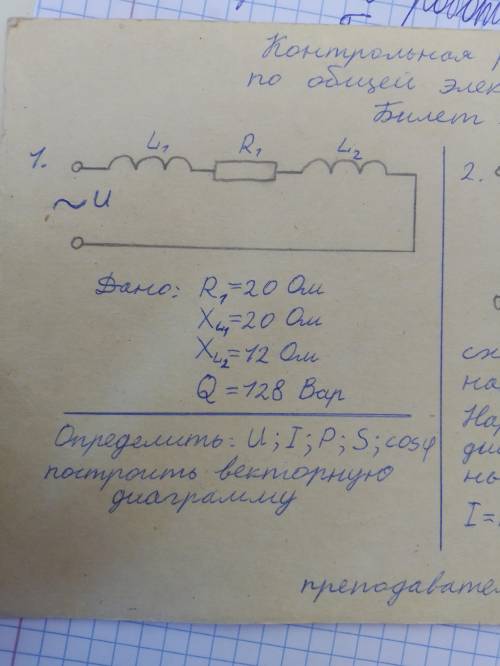 Контрольная
по общей
Билет
1.
L₁ R₁ L₂
~U
Дано: R₁=20 Ом
X_L₁=20 Ом
X_L₂=12 Ом
Q=128 Вар
Определить: U; I; P; S; cosφ
построить векторную
диаграмму
2.
I=